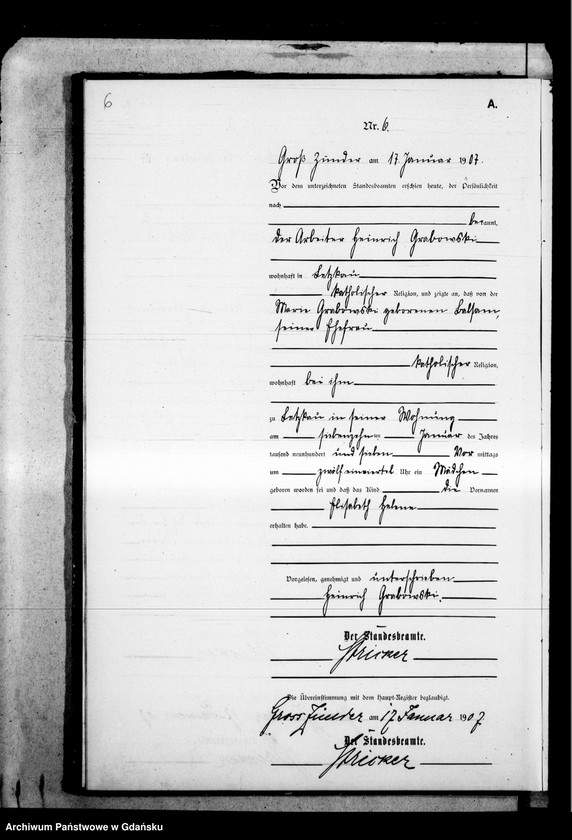 6
A.
Nr. 6.
Groß Zünder am 17 Januar 1907.
Vor dem unterzeichneten Standesbeamten erschien heute, der Persönlichkeit
nach
bekannt,
der Arbeiter Heinrich Grabowski
wohnhaft in Letzkau
katholischer Religion, und zeigte an, daß von der
Marie Grabowski geborenen Balsam,
seiner Ehefrau
katholischer Religion,
wohnhaft bei ihm
zu Letzkau in seiner Wohnung
am siebenzehnten Januar des Jahres
tausend neunhundert und sieben Vor mittags
um zwölf einviertel Uhr ein Mädchen
geboren worden sei und daß das Kind die Vornamen
Elisabeth Helene
erhalten habe.
Vorgelesen, genehmigt und unterschrieben
Heinrich Grabowski.
Der Standesbeamte.
Stricker
Die Übereinstimmung mit dem Haupt-Register beglaubigt.
Gross Zünder am 17. Januar 1907.
Der Standesbeamte.
Stricker
Archiwum Państwowe w Gdańsku